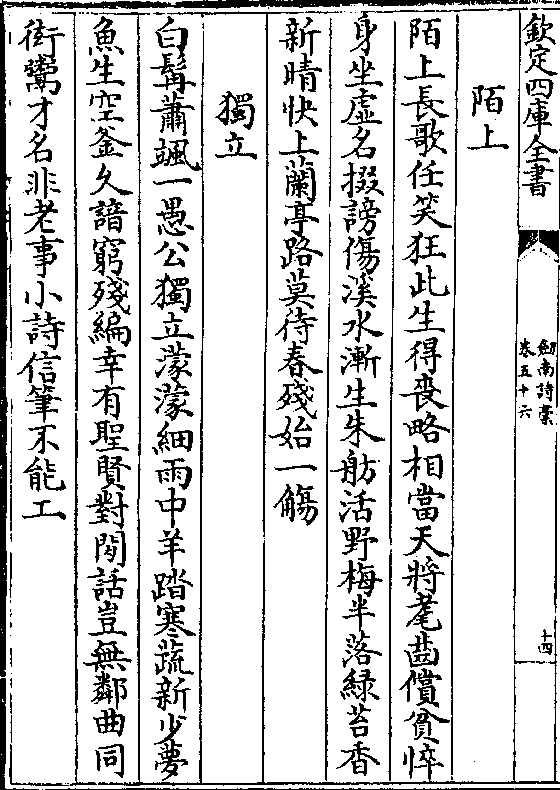 欽定四庫全書
劍南詩稾
卷五十六
十四
陌上
陌上長歌任笑狂此生得喪略相當天將耄齒償貧悴
身坐虛名掇謗傷溪水漸生朱舫活野梅半落緑苔香
新晴快上蘭亭路莫待春殘始一觴
獨立
白髯蕭颯一愚公獨立濛濛細雨中羊踏寒蔬新少夢
魚生空釜久諳窮殘編幸有聖賢對閑話豈無鄰曲同
衒鬻才名非老事小詩信筆不能工